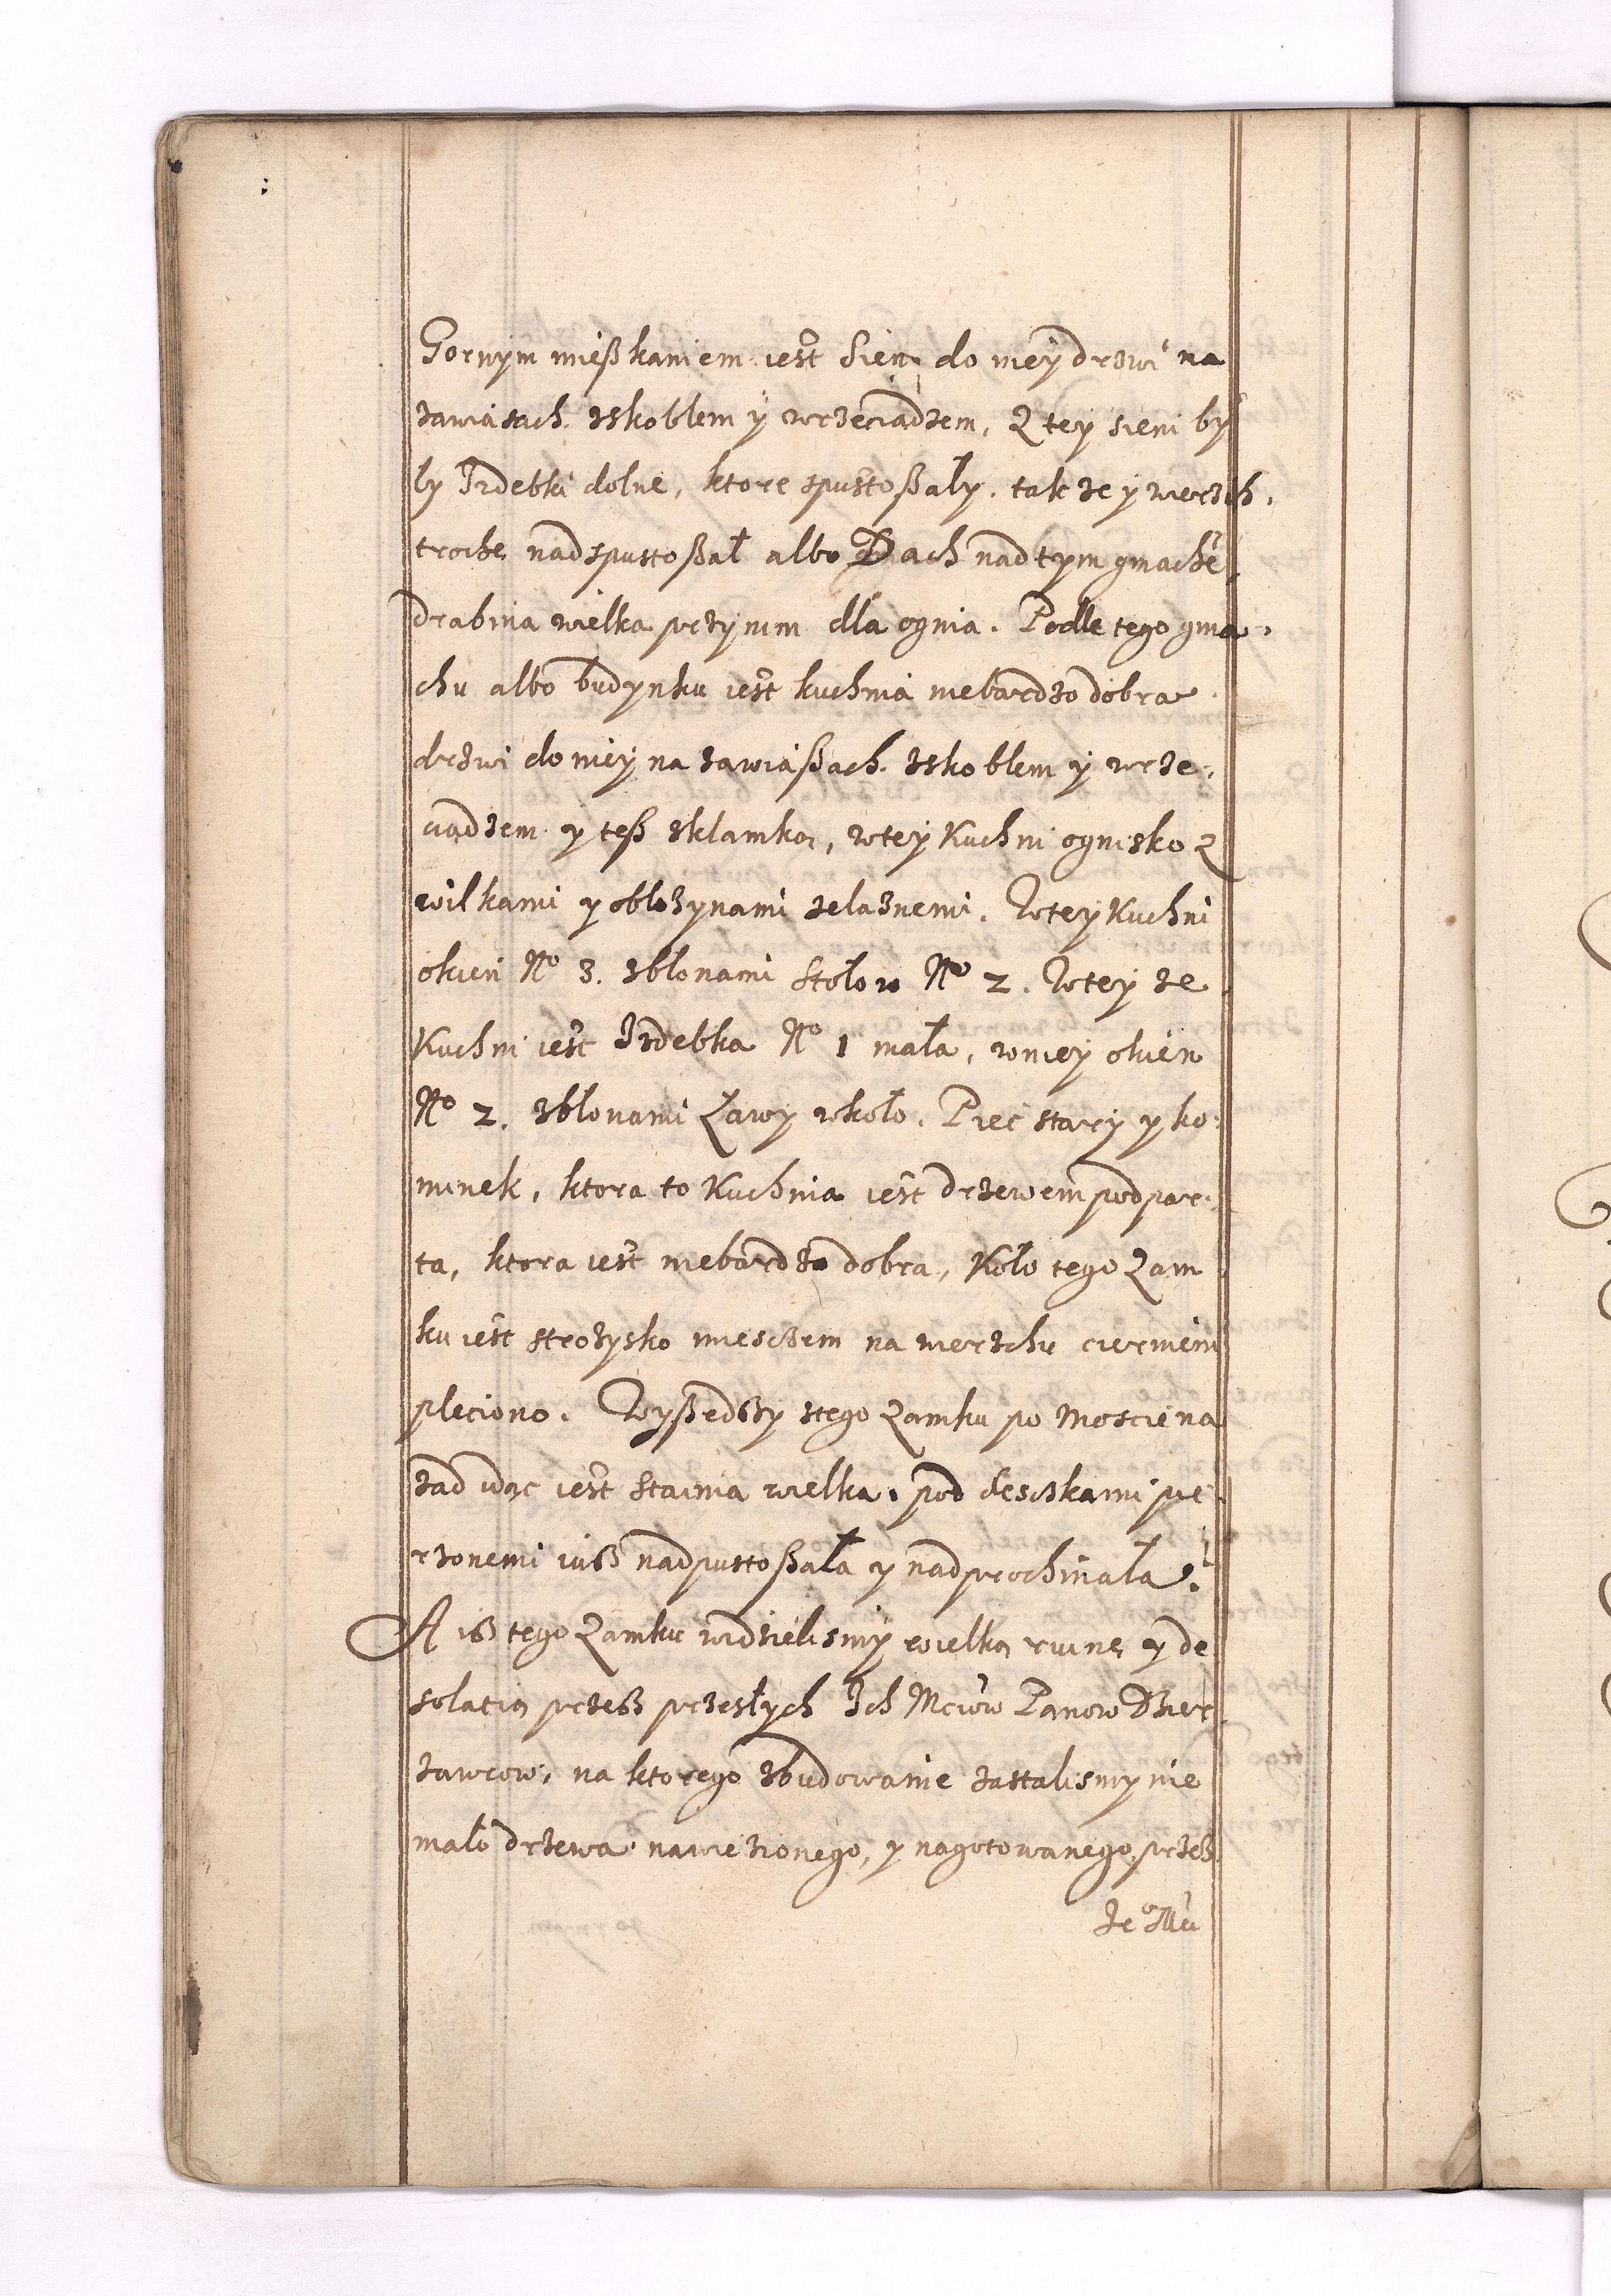 Gornym mieß kaniem iest Sien do niey drzwi na
zawiasach zskoblem y wrzeciadzem, Z tey sieni by
ly Izdebki dolne, ktore spustoßały. tak ze y wierzch,
troche nadspustoßał albo Dach nad tym gmachē,
drabina wielka przy nim dla ognia. Podle tego gma-
chu albo budynku iest kuchnia niebardzo dobra
drzwi do niey na zawiaßach zskoblem y wrze-
ciadzem y teß zklamką, wtey Kuchni ognisko z
wilkami y oblozynami zelaznemi. Wtey Kuchni
okien No 3. zblonami Stolow No 2. Wtey ze
Kuchni iest Izdebka No 1 mała, wniey okien
No 2. zblonami Ławy wkoło. Piec stary y ko-
minek, ktora to Kuchnia iest drzewem podpar-
ta, ktora iest niebardzo dobra, Koło tego Zam
ku iest strozysko mieszczem na wierzchu cierniem
pleciono. Wyßedßy ztego Zamku po Moscie na
zad idąc iest stainia wielka. pod desczkami pie-
rzonemi iuß nadpustoßała y nadprochniała.
A iß tego Zamku widzielismy wielką ruinę y de
solatią przeß przeszłych Ich Mciow Panow Dzier
zawcow, na ktorego zbudowanie zastalismy nie
mało drzewa nawiezionego, y nagotowanego przeß
Ie Mci